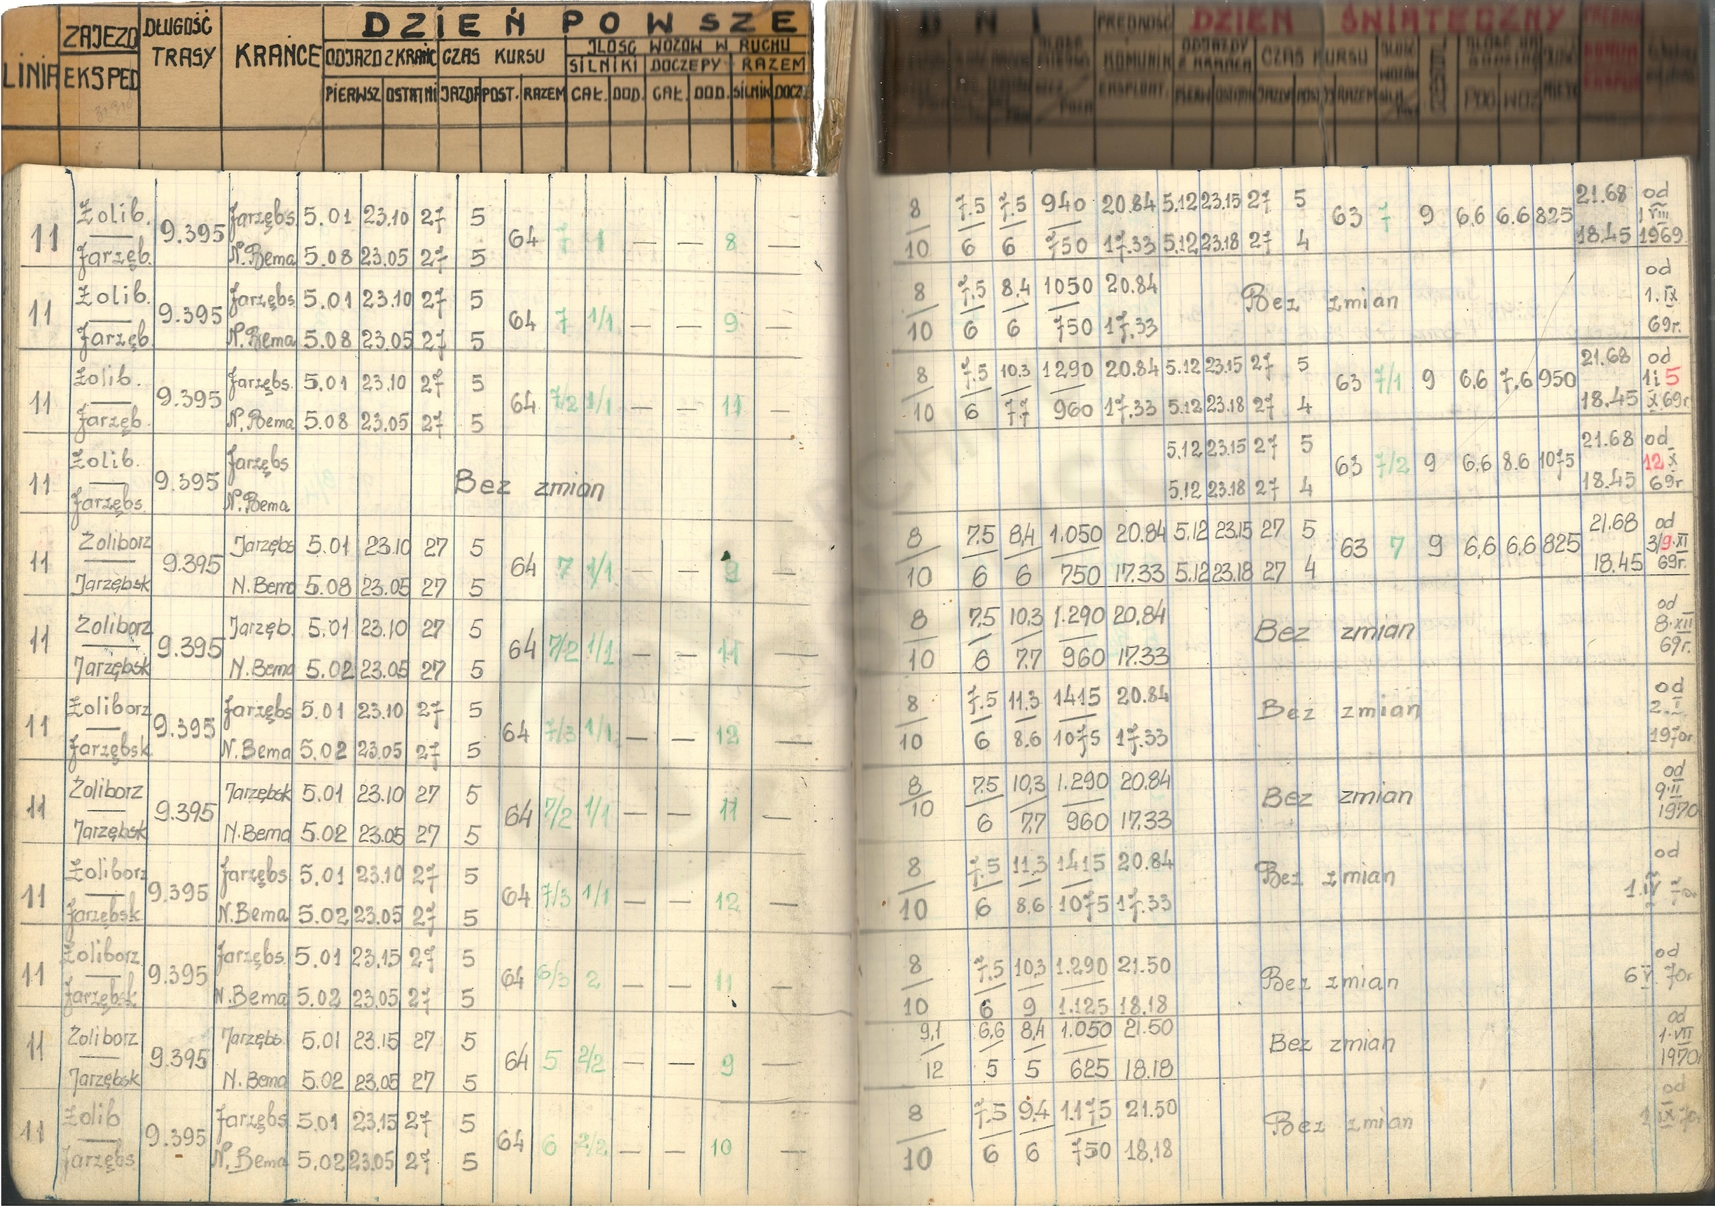 LINIA
ZAJEZD
EKSPED
DŁUGOŚĆ
TRASY
KRAŃCE
DZIEŃ POWSZE
ODJAZD Z KRAŃC CZAS KURSU
ILOŚĆ WOZÓW W RUCHU
SILNIKI DOCZEPY RAZEM
PIERWSZ OSTATNI JAZDA POST. RAZEM CAŁ. DOD. CAŁ. DOD. SILNIK DOCZ.
DZIEŃ ŚWIĄTECZNY
PRĘDNOŚĆ
KOMUNIK
EKSPLOAT.
ODJAZDY
Z KRAŃCA
CZAS KURSU
Żolib. Jarzębs. 5.01 23.10 27 5 8 7.5 7.5 940 20.84 5.12 23.15 27 5 21.68 od
11 9.395 64 7 1 — — 8 — 63 7 9 6,6 6.6 825 1 VIII
Jarzęb. N.Bema 5.08 23.05 27 5 10 6 6 750 17.33 5.12 23.18 27 4 18.45 1969
Żolib. Jarzębs 5.01 23.10 27 5 8 7.5 8,4 1050 20.84 od
11 9.395 64 7 1/1 — — 9 — Bez zmian 1.IX
Jarzęb. N.Bema 5.08 23.05 27 5 10 6 6 750 17.33 69r.
Żolib. Jarzębs. 5.01 23.10 27 5 8 7.5 10,3 1290 20.84 5.12 23.15 27 5 21.68 od
11 9.395 64 7/2 1/1 — — 11 — 63 7/1 9 6,6 7,6 950 1i 5
Jarzęb. N.Bema 5.08 23.05 27 5 10 6 7.7 960 17.33 5.12 23.18 27 4 18.45 X.69r
Żolib. Jarzębs 5.12 23.15 27 5 21.68 od
11 9.395 Bez zmian 63 7/2 9 6.6 8.6 1075 12 X
Jarzębs N.Bema 5.12 23.18 27 4 18.45 69r
Żoliborz Jarzębs 5.01 23.10 27 5 8 7.5 8,4 1.050 20.84 5.12 23.15 27 5 21.68 od
11 9.395 64 7 1/1 — — 9 — 63 7 9 6,6 6,6 825 3/9.XI
Jarzębsk N.Bema 5.08 23.05 27 5 10 6 6 750 17.33 5.12 23.18 27 4 18.45 69r.
Żoliborz Jarzęb. 5.01 23.10 27 5 8 7.5 10,3 1.290 20.84 od
11 9.395 64 7/2 1/1 — — 11 — Bez zmian 8.XII
Jarzębsk N.Bema 5.02 23.05 27 5 10 6 7.7 960 17.33 69r.
Żoliborz Jarzębs 5.01 23.10 27 5 8 7.5 11.3 1415 20.84 od
11 9.395 64 7/3 1/1 — — 12 — Bez zmian
Jarzębsk N.Bema 5.02 23.05 27 5 10 6 8.6 1075 17.33 1970r
Żoliborz Jarzębsk 5.01 23.10 27 5 8 7.5 10,3 1.290 20.84 od
11 9.395 64 7/2 1/1 — — 11 — Bez zmian 9.II
Jarzębsk N.Bema 5.02 23.05 27 5 10 6 7.7 960 17.33 1970
Żoliborz Jarzębs. 5.01 23.10 27 5 8 7.5 11,3 1415 20.84 od
11 9.395 64 7/3 1/1 — — 12 — Bez zmian 1.IV 70r
Jarzębsk N.Bema 5.02 23.05 27 5 10 6 8.6 1075 17.33
Żoliborz Jarzębs. 5.01 23.15 27 5 8 7.5 10,3 1.290 21.50 od
11 9.395 64 6/3 2 — — 11 — Bez zmian 6 V. 70r
Jarzębsk N.Bema 5.02 23.05 27 5 10 6 9 1.125 18,18
Żoliborz Jarzębs. 5.01 23.15 27 5 9,1 6,6 8,4 1.050 21.50 od
11 9.395 64 5 2/2 — — 9 — Bez zmian 1.VII
Jarzębsk N.Bema 5.02 23.05 27 5 12 5 5 625 18.18 1970r
Żolib Jarzębs. 5.01 23.15 27 5 8 7.5 9,4 1.175 21.50 od
11 9.395 64 6 2/2 — — 10 — Bez zmian 1 IX 70r
Jarzębs N.Bema 5.02 23.05 27 5 10 6 6 750 18,18